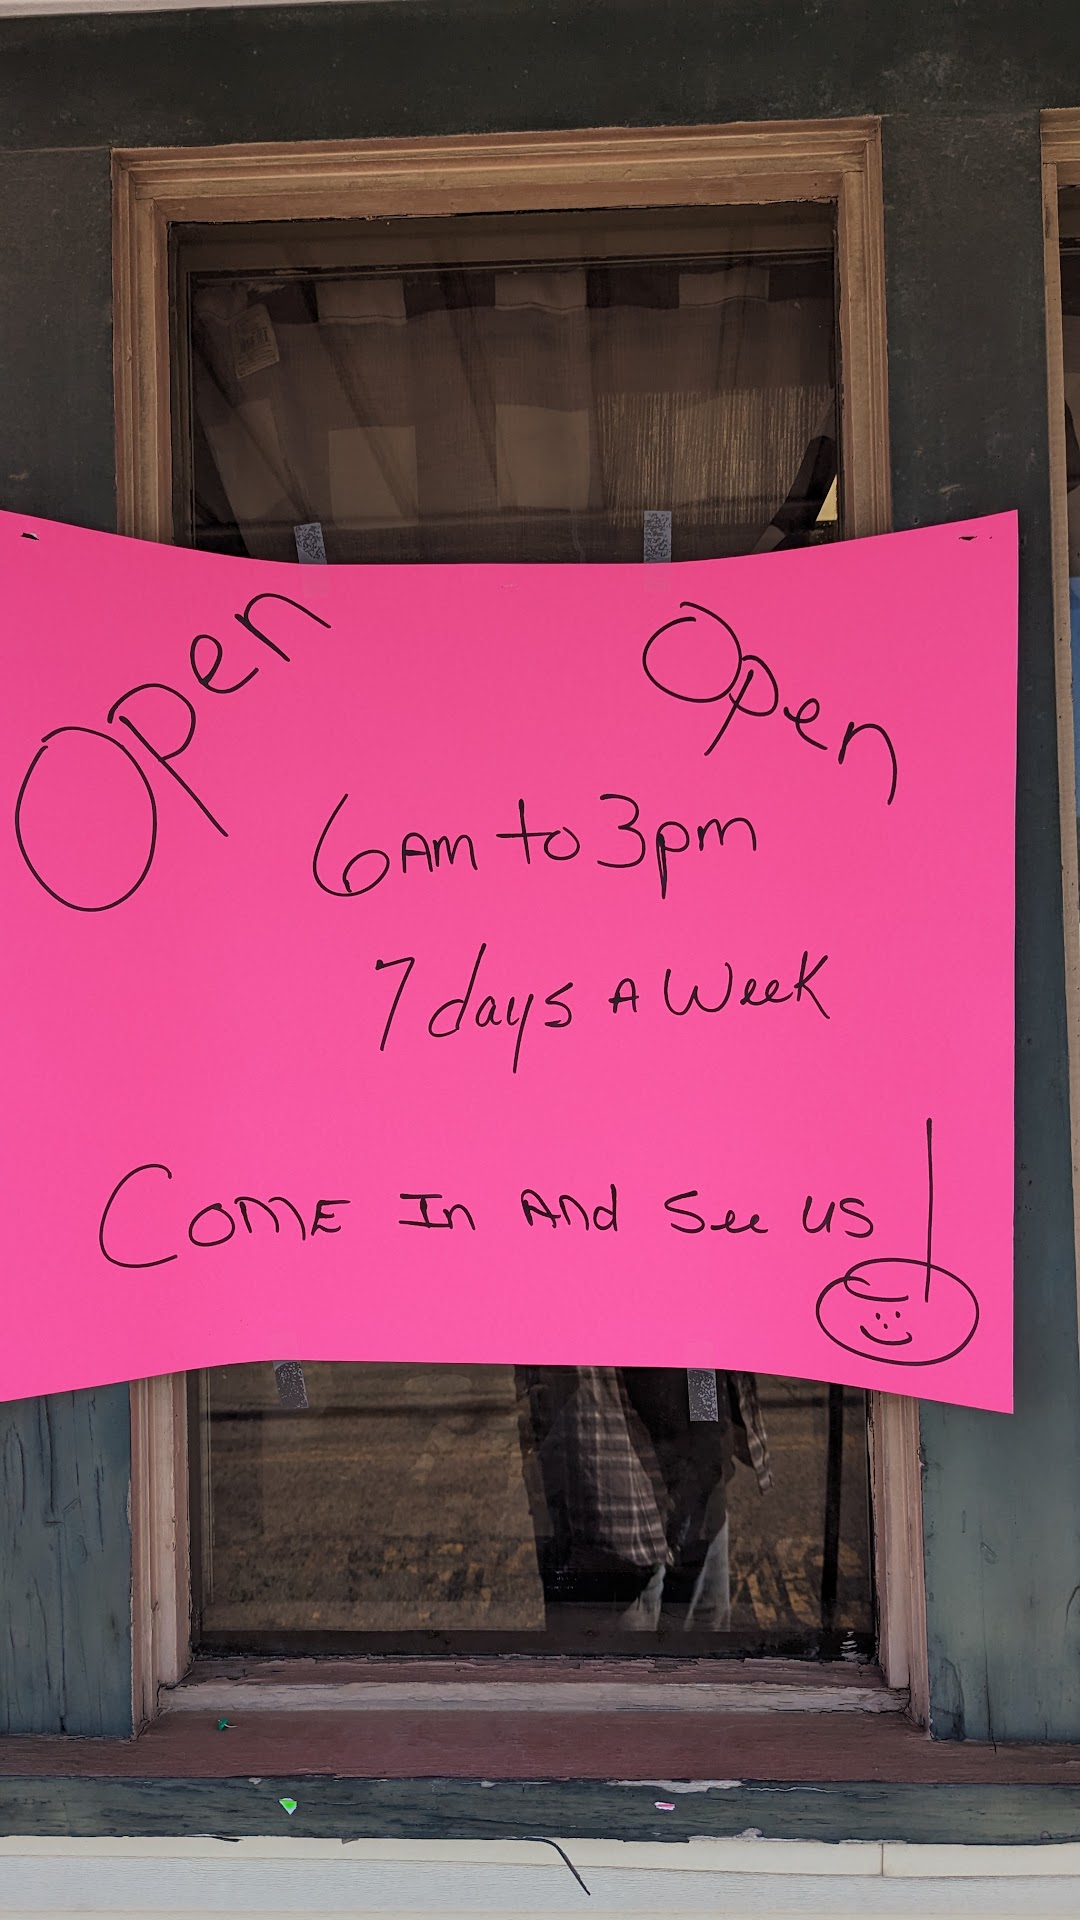 Open Open
6AM to 3pm
7 days A Week
COME In And See us!